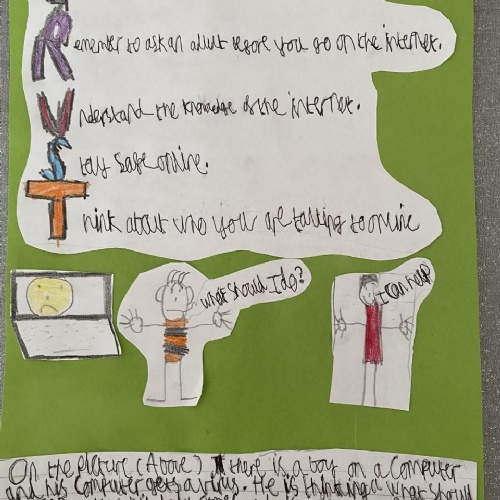 Remember to ask an adult before you go on the internet.
Understand the knowledge of the internet.
Stay safe online.
Think about who you are talking to online
what should I do?
I can help
On the picture (Above) there is a boy on a computer
and his computer gets a virus. He is thinking what should